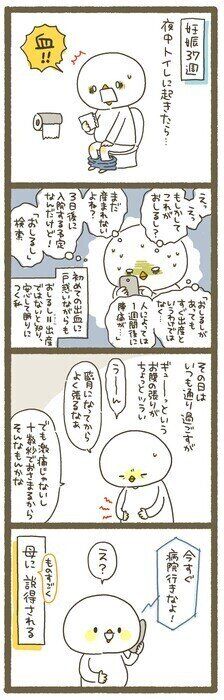 妊娠37週
夜中トイレに起きたら…
血!!
えっ
えっ
もしかして
これが
おしるし?
まだ
産まれない
よね?
3日後に
入院する予定
なんだけど!
「おしるし」
検索
「おしるしが
あっても
すぐ出産と
いうわけでは
なく
人によっては
1週間後に
陣痛が…」
初めての出血に
戸惑いながらも
おしるし=出産
ではないと知り
安心し眠りに
つく私
その日は
いつも通り過ごすが
ギューーッという
お腹の張りが
ちょっとツライ
うーーん
臨月になってから
よく張るなぁ
でも激痛じゃないし
十数秒でおさまるから
そんなもんかな
今すぐ
病院行きなよ!
え?
ものすごく
母に説得される